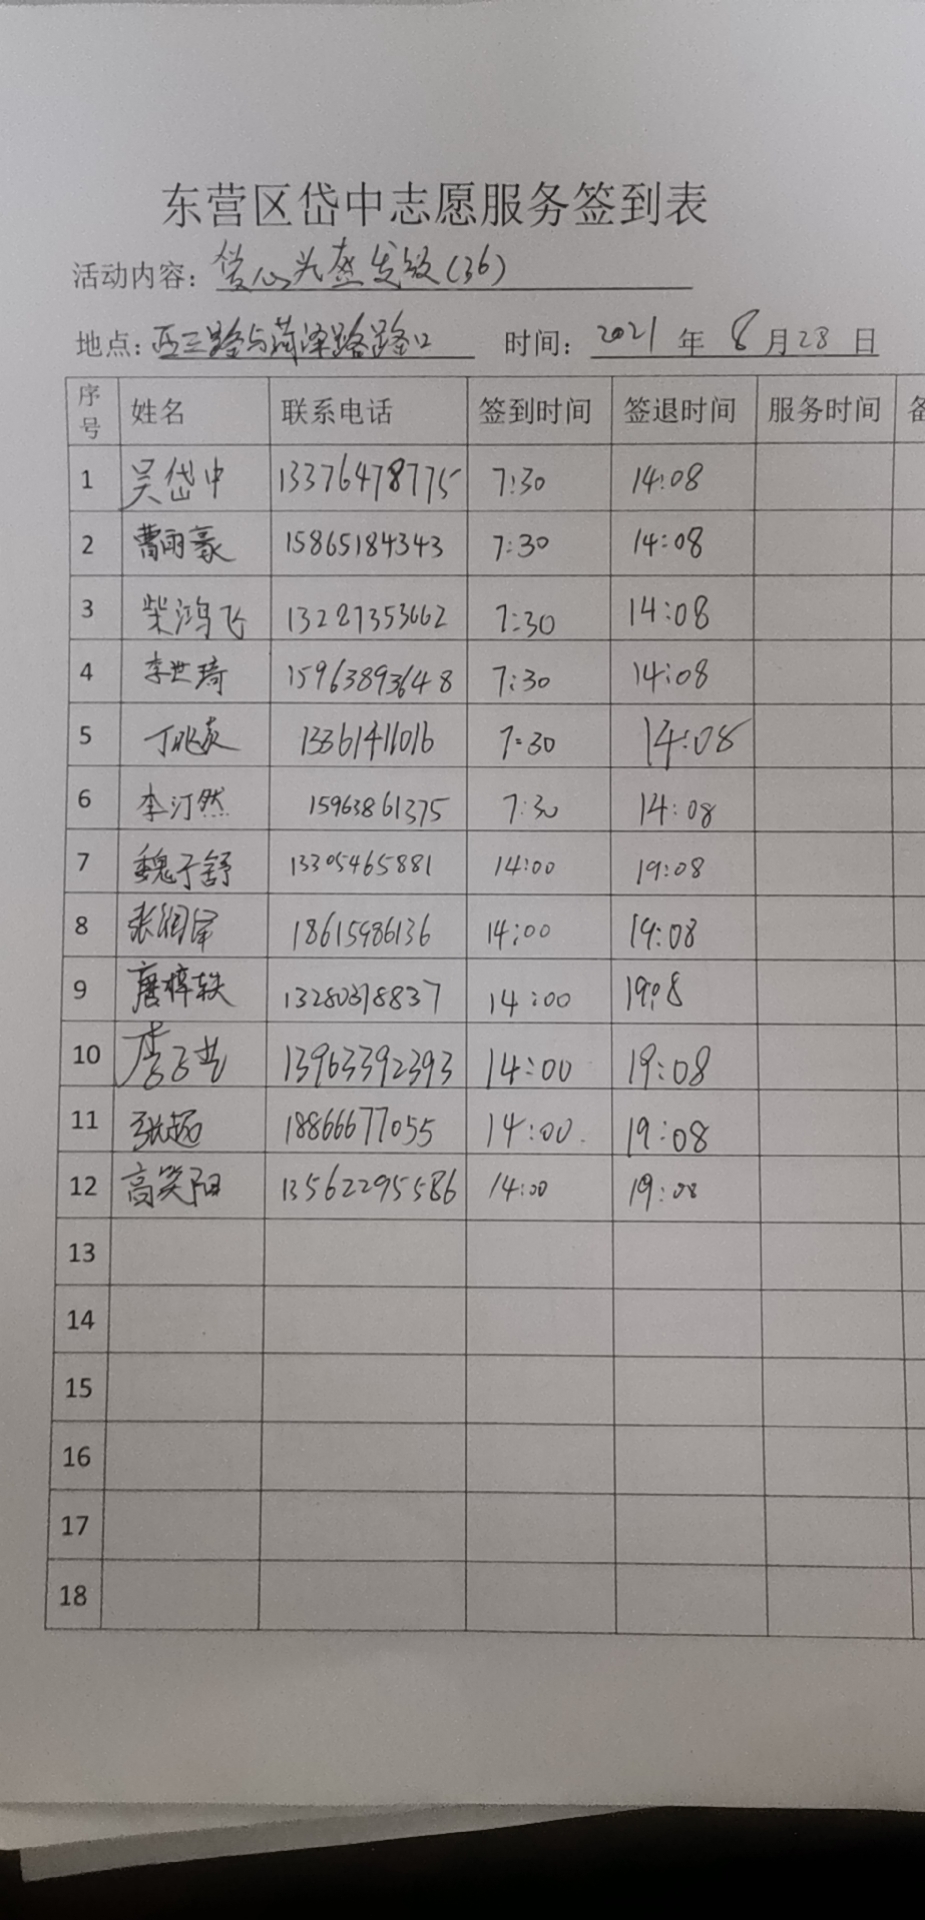 东营区岱中志愿服务签到表
活动内容：爱心头盔发放(36)
地点：西三路与菏泽路路口 时间：2021 年 8 月 28 日
序号 姓名 联系电话 签到时间 签退时间 服务时间
1 吴岱中 13376478775 7:30 14:08
2 曹雨豪 15865184343 7:30 14:08
3 柴鸿飞 13287353662 7:30 14:08
4 李世琦 15963893648 7:30 14:08
5 13361411016 7:30 14:08
6 李汀然 15963861375 7:30 14:08
7 魏子舒 13305465881 14:00 19:08
8 张润泽 18615986136 14:00 19:08
9 唐梓轶 13280378837 14:00 19:8
10 13963392393 14:00 19:08
11 张超 18866677055 14:00 19:08
12 高笑阳 13562295586 14:00 19:08
13
14
15
16
17
18